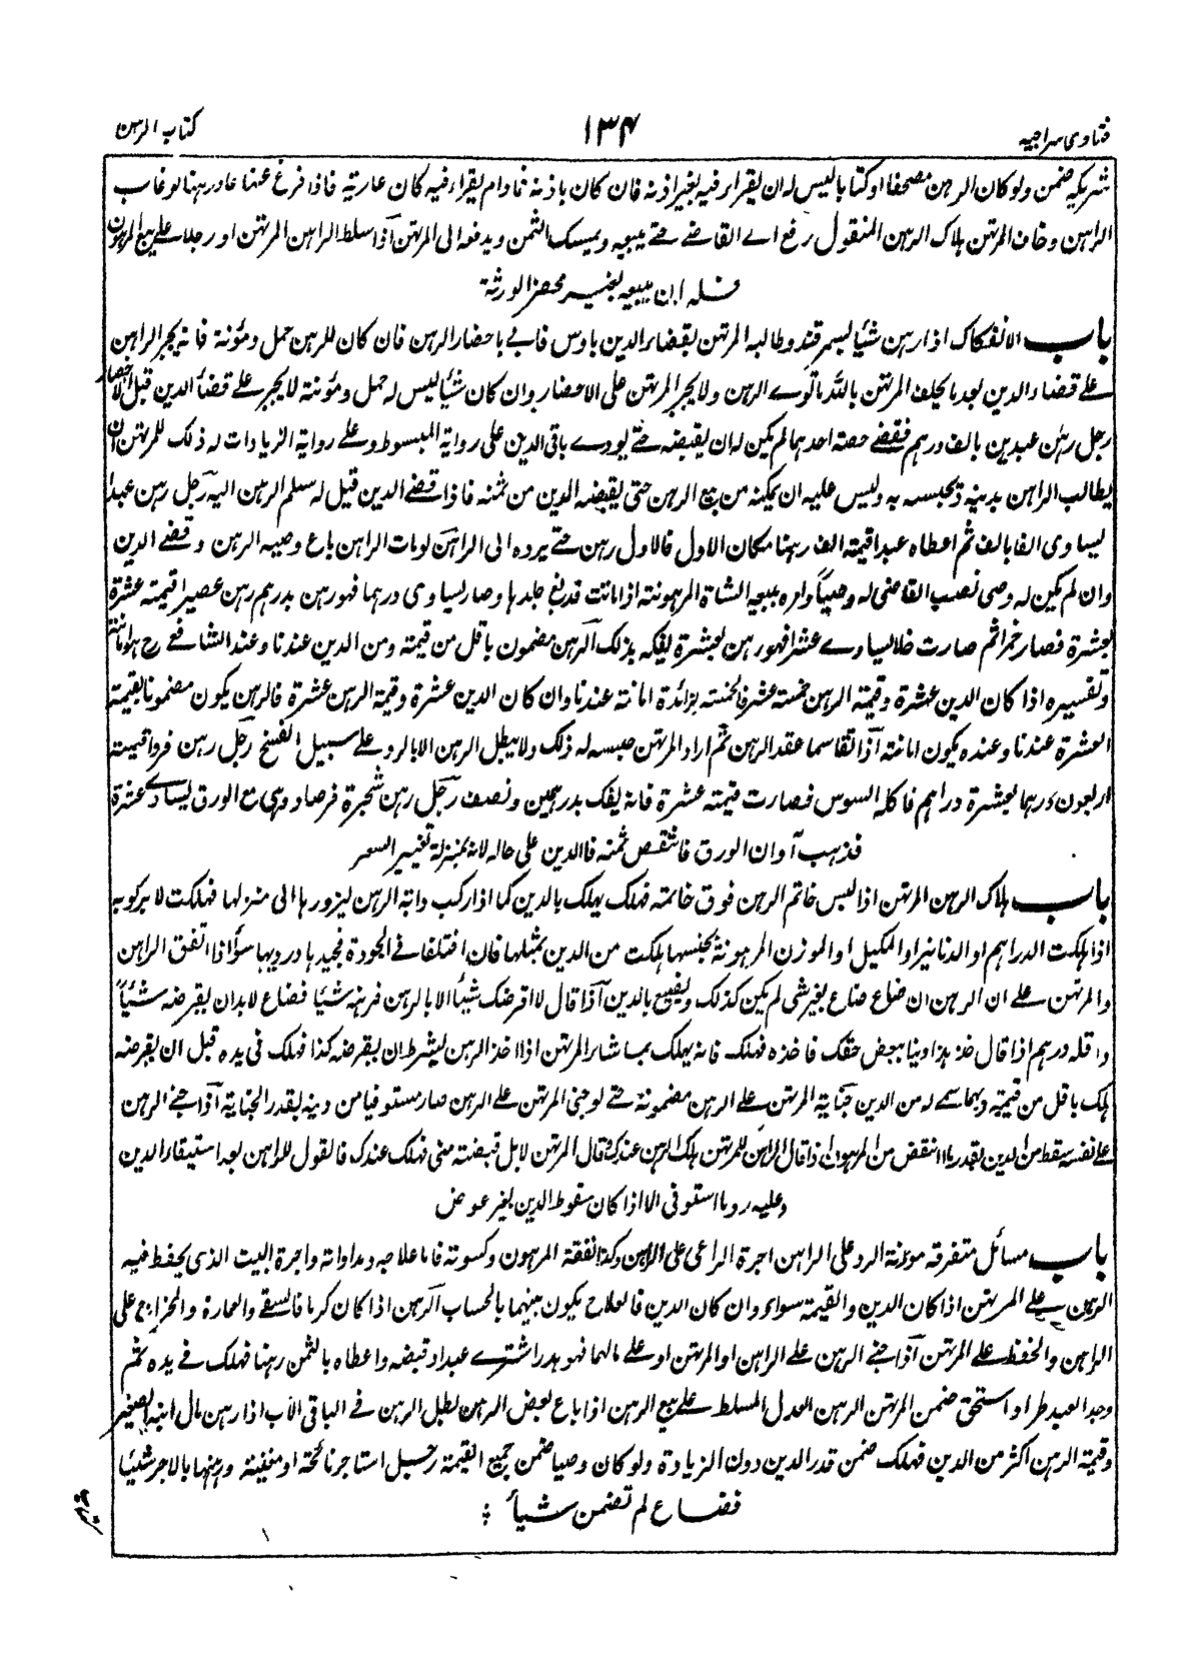 فتاوى سراجيه
۱۳۴
كتاب الرهن
شريكه ضمن ولو كان الرهن مصحفا او كتابا ليس له ان يقرا فيه بغير اذنه فان كان باذنه فما دام يقراء فيه كان عارية فاذا فرغ عنها عاد رهنا لو غاب
الراهن وخاف المرتهن هلاك الرهن المنقول رفع الى القاضى حتى يبيعه ويمسك الثمن ويدفعه الى المرتهن اذا سلط الراهن المرتهن او رجلا على بيع المرهون
فله ان يبيعه بغير محضر الورثة
باب الانفكاك اذا رهن شيئا بسمرقند وطالبه المرتهن بقضاء الدين باوس فابى باحضار الرهن فان كان للرهن حمل ومؤنة فانه يجبر الراهن
على قضاء الدين بعد ما يحلف المرتهن بالله ما توى الرهن ولا يجبر المرتهن على الاحضار وان كان شيئا ليس له حمل ومؤنة لا يجبر على قضاء الدين قبل الاحضار
رجل رهن عبدين بالف درهم فقضى حصة احدهما لم يكن له ان يقبضه حتى يودى باقى الدين على رواية المبسوط وعلى رواية الزيادات له ذلك للمرتهن ان
يطالب الراهن بدينه ويحبسه به وليس عليه ان يمكنه من بيع الرهن حتى يقبضه الدين من ثمنه فاذا قضى الدين قيل له سلم الرهن اليه رجل رهن عبدا
يساوى الفا بالف ثم اعطاه عبدا قيمته الف رهنا مكان الاول فالاول رهن حتى يرده الى الراهن لو مات الراهن باع وصيه الرهن وقضى الدين
وان لم يكن له وصى نصب القاضى له وصيا وامره ببيعه الشاة المرهونة اذا ماتت فدبغ جلدها وصار يساوى درهما فهو رهن بدرهم رهن عصيرا قيمته عشرة
بعشرة فصار خمرا ثم صارت خلا يساوى عشرا فهو رهن بعشرة يفكه بذلك الرهن مضمون باقل من قيمته ومن الدين عندنا وعند الشافعى رح هو امانة
وتفسيره اذا كان الدين عشرة وقيمة الرهن خمسة عشر فالخمسة زائدة امانة عندنا وان كان الدين عشرة وقيمة الرهن عشرة فالرهن يكون مضمونا بقيمته
العشرة عندنا وعنده يكون امانة اذا تقاسما عقد الرهن ثم اراد المرتهن حبسه له ذلك ولا يبطل الرهن الا بالرد على سبيل الفسخ رجل رهن فروا قيمته
اربعون درهما بعشرة دراهم فاكله السوس فصارت قيمته عشرة فانه يفك بدرهمين ونصف رجل رهن شجرة فرصاد وهى مع الورق يساوى عشرة
فذهب آوان الورق فانتقص ثمنه فالدين على حاله لانه بمنزلة تغيير السعر
باب هلاك الرهن المرتهن اذا لبس خاتم الرهن فوق خاتمه فهلك يهلك بالدين كما اذا ركب دابة الرهن ليزورها الى منزلها فهلكت لا بركوبه
اذا هلكت الدراهم او الدنانير او المكيل او الموزون المرهونة بجنسها هلكت من الدين بمثلها فان اختلفا فى الجودة فجيدها ورديها سواء اذا اتفق الراهن
والمرتهن على ان الرهن ان ضاع ضاع بغير شى لم يكن كذلك ويضيع بالدين اذا قال لا اقرضك شيئا الا بالرهن فرهنه شيئا فضاع لا بد ان يقرضه شيئا
واقله درهم اذا قال خذ هذا رهنا ببعض حقك فاخذه فهلك فانه يهلك بما شاء المرتهن اذا اخذ الرهن ليشرط ان يقرضه كذا فهلك فى يده قبل ان يقرضه
هلك باقل من قيمته وبما سمى له من الدين جناية المرتهن على الرهن مضمونة حتى لو جنى المرتهن على الرهن صار مستوفيا من دينه بقدر الجناية اذا جنى الرهن
على نفسه سقط من الدين بقدر ما انتقص من المرهون اذا قال الراهن للمرتهن هلك الرهن عندك وقال المرتهن لا بل قبضته منى فهلك عندك فالقول للراهن بعد استيفاء الدين
وعليه رد ما استوفى الا اذا كان سقوط الدين بغير عوض
باب مسائل متفرقه مؤنة الرد على الراهن اجرة الراعى على الراهن وكذا نفقة المرهون وكسوته فاما علاجه ومداواته واجرة البيت الذى يحفظ فيه
الرهن على المرتهن اذا كان الدين والقيمة سواء وان كان الدين فالعلاج يكون بينهما بالحساب الرهن اذا كان كرما فالسقى والعمارة والخراج على
الراهن والحفظ على المرتهن اذا جنى الرهن على الراهن او المرتهن او على مالهما فهو هدر اشترى عبدا وقبضه واعطاه بالثمن رهنا فهلك فى يده ثم
وجد العبد حرا او استحق ضمن المرتهن الرهن العدل المسلط على بيع الرهن اذا باع بعض الرهن بطل الرهن فى الباقى الاب اذا رهن مال ابنه الصغير
وقيمة الرهن اكثر من الدين فهلك ضمن قدر الدين دون الزيادة ولو كان وصيا ضمن جميع القيمة رجل استاجر نائحة او مغنية ورهنها بالاجر شيئا
فضاع لم تضمن شيأ